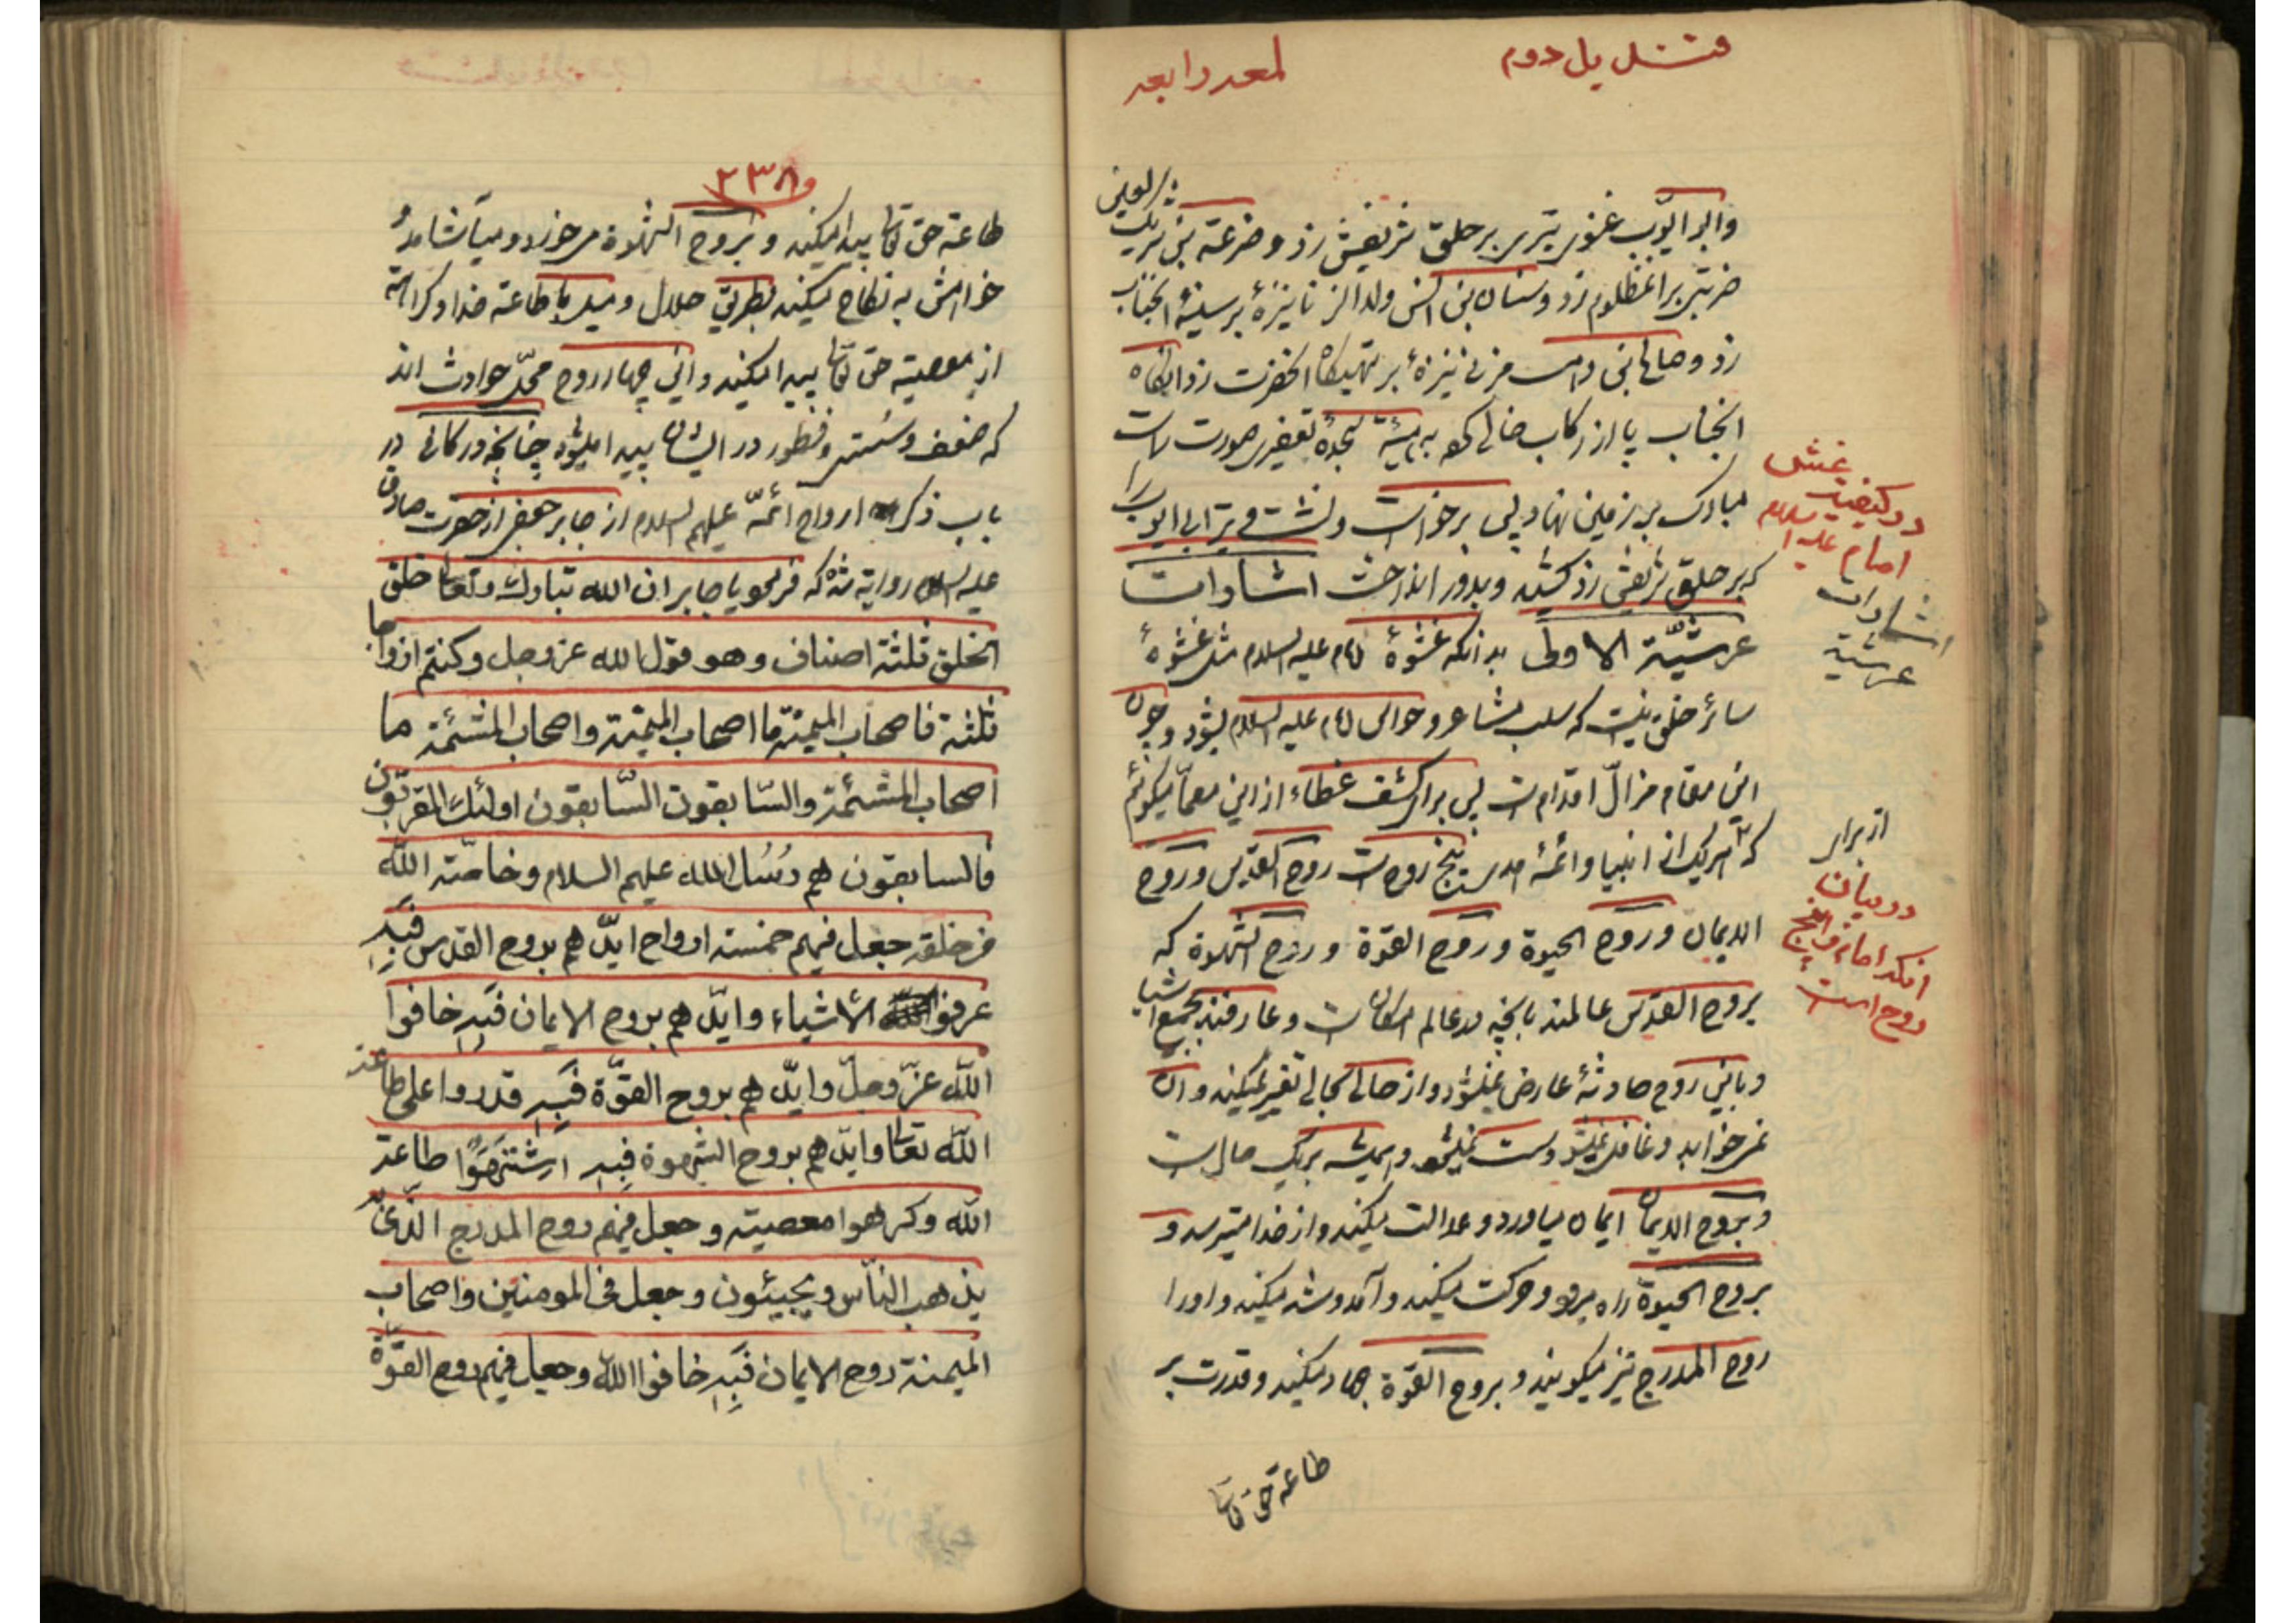 قندیل دوم
لمعه رابعه
والبو ایّوب غنوی تیری بر حلق شریفش زد و ضرعة بن شریک
العین
ضربتی بر آنمظلوم زد و سنان بن انس ولد الزنا نیزهٔ بر سینهٔ آنجناب
زد و صالح بن وهب مزنی نیزهٔ بر تهیگاه آنحضرت زد آنگاه
آنجناب پا از رکاب خالی کرد به هیئة سجدهٔ تعفیر صورت
مبارک بر زمین نهاد پس برخواست و نشست و تیر ابی ایوب را
که بر حلق شریفش زد کشید و بدور انداخت اشارات
عرشیّة الاولی بدانکه غشوهٔ امام علیه السلام مثل غشوهٔ
سائر خلق نیست که سلب مشاعر و حواس امام علیه السلام بشود و چون
این مقام مزالّ اقدام است پس برای کشف غطاء از این معمّا میگوئیم
که هر یک از انبیا و ائمهٔ هدی پنج روحست روح القدس و روح
الایمان و روح الحیوة و روح القوّة و روح الشهوة که
بروح القدس عالمند بآنچه در عالم امکان است و عارفند بجمیع اشیا
و باین روح حادثهٔ عارض نمیشود و از حالی بحالی تغیر نمیکند و آن
نمیخوابد و غافل نمیشود و سست نمیشود و همیشه بر یک حال است
و بروح الایمان ایمان میاورد و عدالت میکند و از خدا میترسد و
بروح الحیوة راه میرود و حرکت میکند و آمد و شد میکند و او را
روح المدرج نیز میگویند و بروح القوّة جهاد میکند و قدرت بر
طاعة حق تعالی
در کیفیت غش
امام علیه السلام
اشارات
عرشیة
از برار
در بیان
آنکه امام را پنج
روح است
٢٣٨
طاعة حق تعالی پیدا میکند و بروح الشهوة میخورد و میآشامد و
خواهش به نکاح میکند بطریق حلال و میل بطاعة خدا و کراهة
از معصیة حق تعالی پیدا میکند و این چهار روح محلّ حوادث اند
که ضعف و سستی و فطور در ایشان پیدا میشود چنانچه در کافی در
باب ذکر ارواح ائمّة علیهم السلام از جابر جعفی از حضرت صادق
علیه السلام روایة شده که فرمود یا جابر ان الله تبارک وتعالی خلق
الخلق ثلثة اصناف وهو قول الله عز وجل وکنتم ازواجا
ثلثة فاصحاب المیمنة ما اصحاب المیمنة واصحاب المشئمة ما
اصحاب المشئمة والسّابقون السّابقون اولئک المقرّبون
فالسابقون هم رُسُل الله علیهم السلام وخاصّة الله
من خلقه جعل فیهم خمسة ارواح ایّدهم بروح القدس فَبِهِ
عرفوا الاشیاء وایّدهم بروح الایمان فَبِهِ خافوا
الله عزّ وجلّ وایّدهم بروح القوّة فَبِهِ قدروا علی طاعة
الله تعالی وایّدهم بروح الشهوة فبِهِ اشتَهَوْا طاعة
الله وکرهوا معصیته وجعل فیهم روح المدرج الّذی
یذهب النّاس ویجیئون وجعل فی المومنین واصحاب
المیمنة روح الایمان فَبِهِ خافوا الله وجعل فیهم روح القوّة